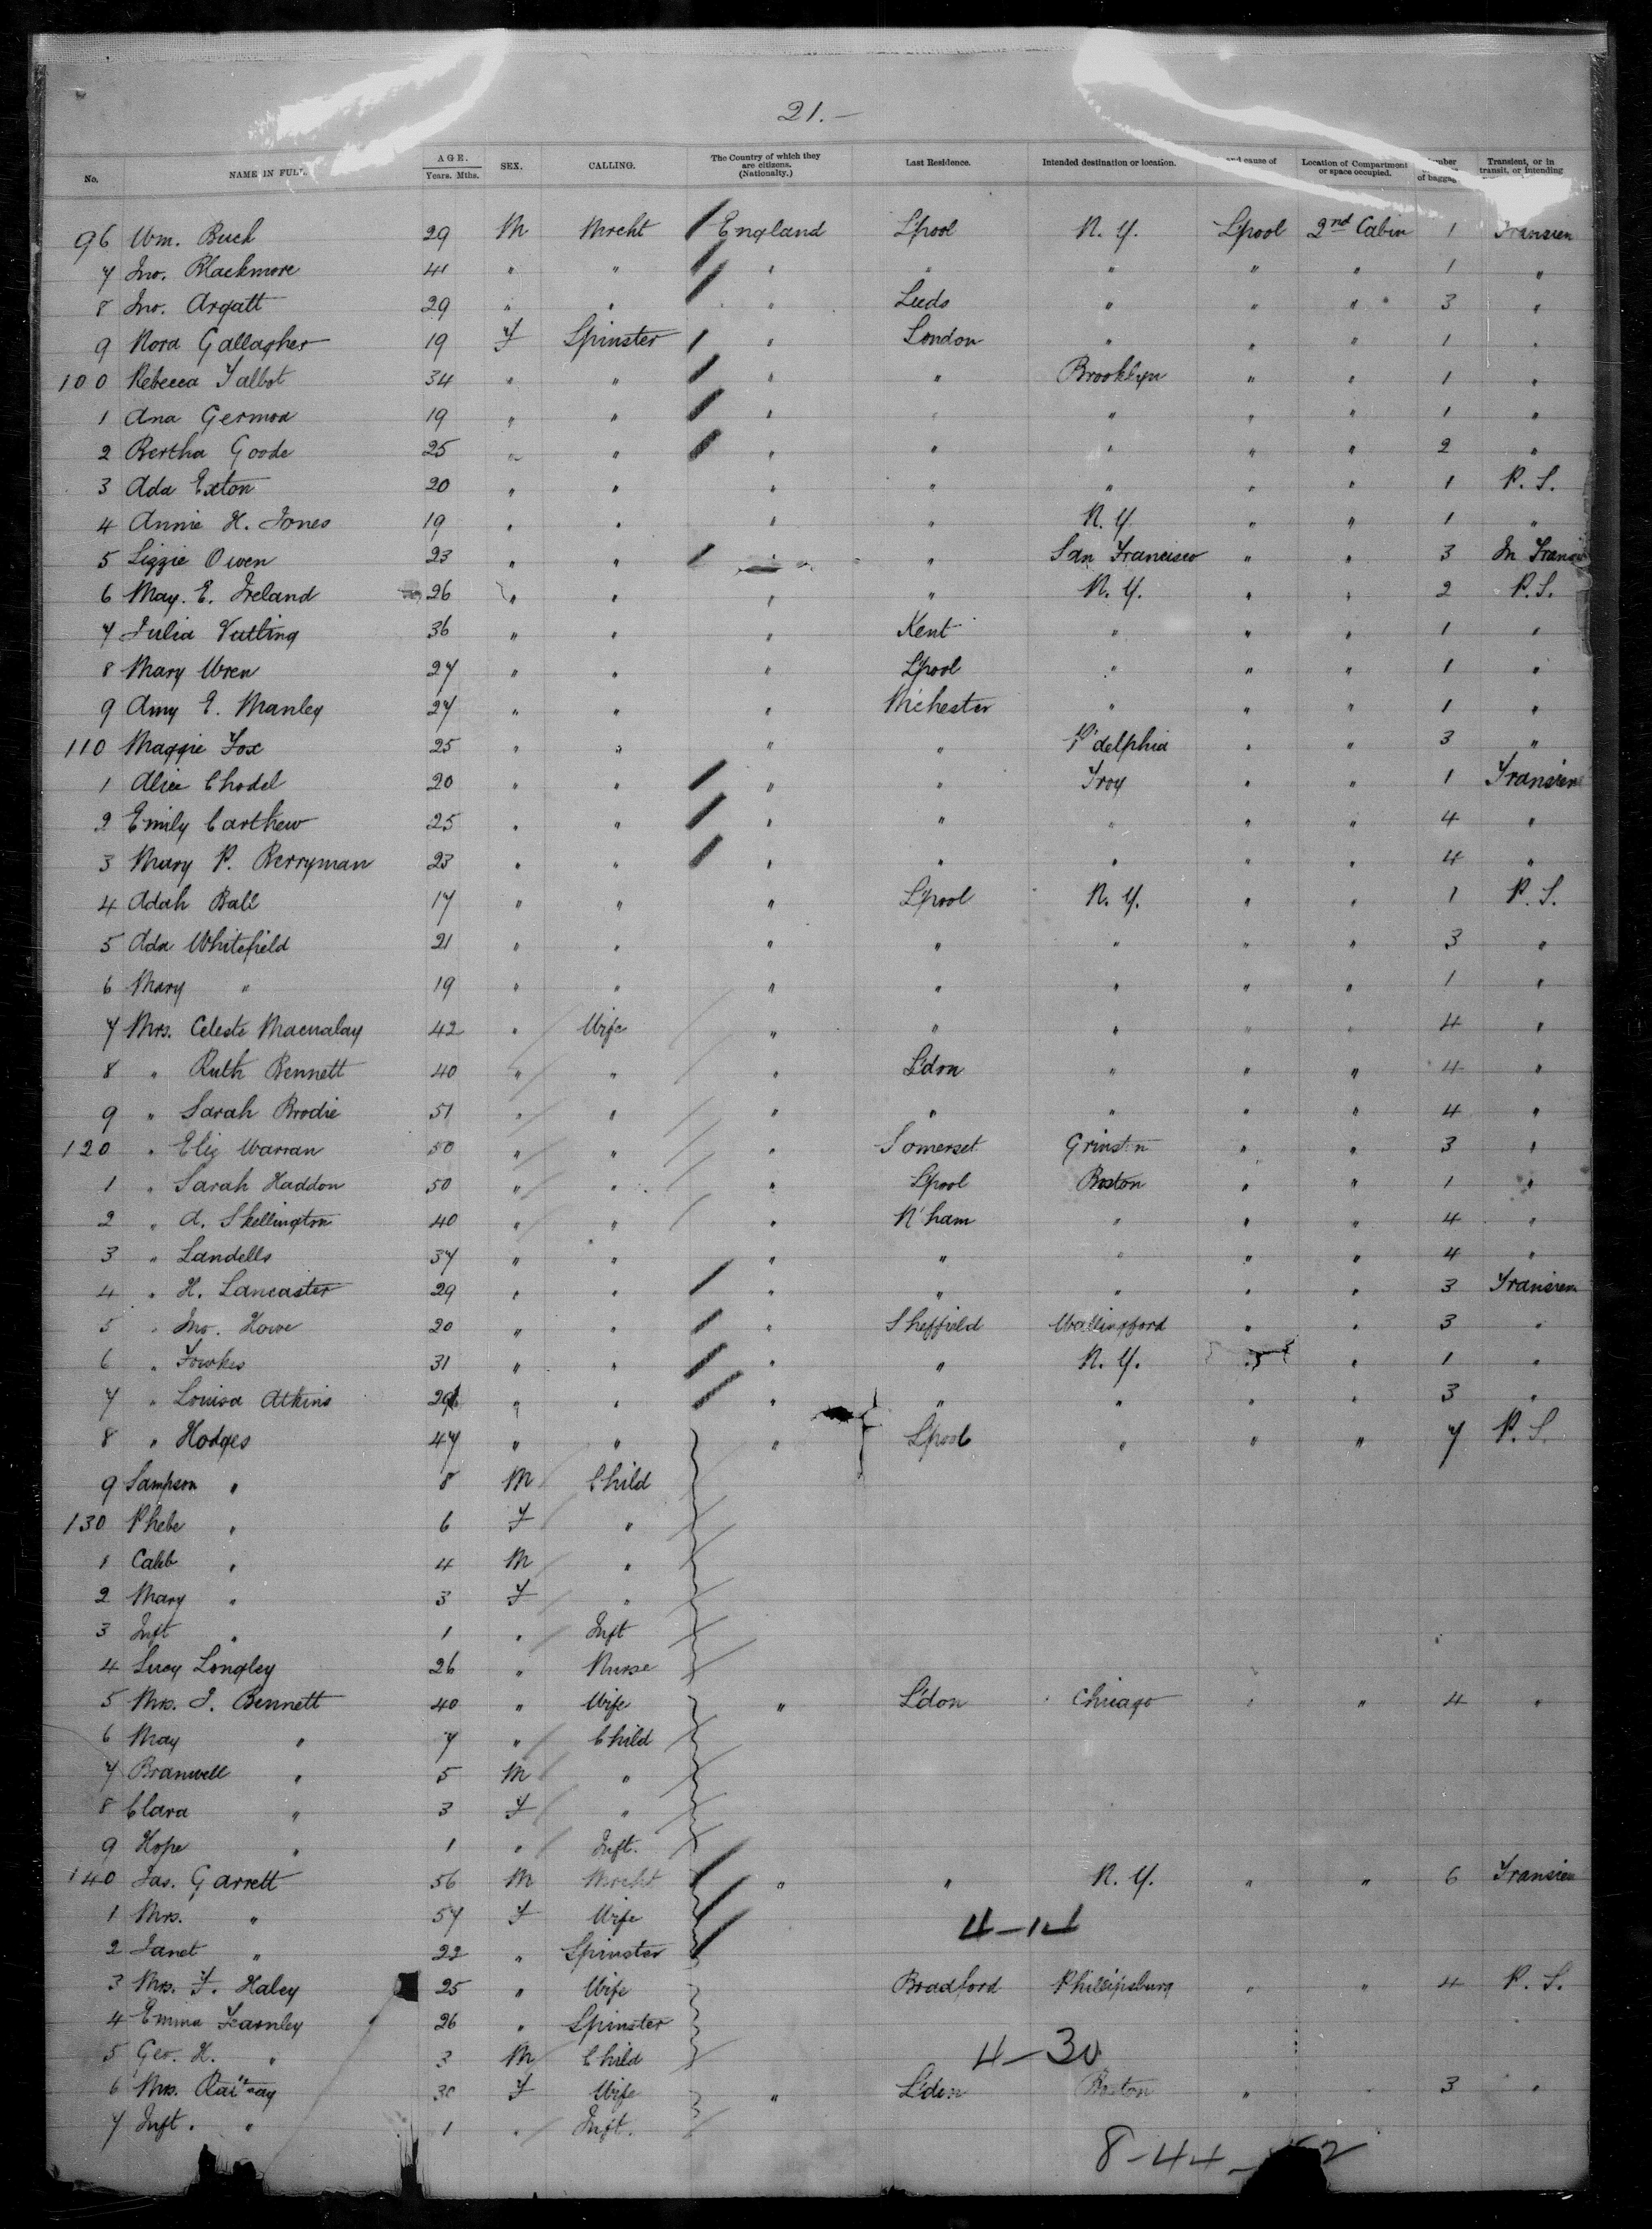 21.-
No. NAME IN FULL. AGE. Years. Mths. SEX. CALLING. The Country of which they are citizens. (Nationality.) Last Residence. Intended destination or location. and cause of Location of Compartment or space occupied. of baggag Transient, or in transit, or intending
96 Wm. Buch 29 M Mrcht England L'pool N. Y. L'pool 2nd Cabin 1 Transien
7 Jno. Blackmore 41 " " " " " " " 1 "
8 Jno. Argatt 29 " " " Leeds " " " 3 "
9 Nora Gallagher 19 F Spinster " London " " " 1 "
100 Rebecca Talbot 34 " " " " Brooklyn " " 1 "
1 Ana Germoa 19 " " " " " " " 1 "
2 Bertha Goode 25 " " " " " " " 2 "
3 Ada Exton 20 " " " " " " " 1 P. S.
4 Annie H. Jones 19 " " " " N. Y. " " 1 "
5 Lizzie Owen 23 " " " " San Francisco " " 3 In Trans
6 May. E. Ireland 26 " " " " N. Y. " " 2 P. S.
7 Julia Vutling 36 " " " Kent " " " 1 "
8 Mary Wren 27 " " " L'pool " " " 1 "
9 Amy E. Manley 27 " " " M'chester " " " 1 "
110 Maggie Fox 25 " " " " P'delphia " " 3 "
1 Alice Chodel 20 " " " " Troy " " 1 Transien
2 Emily Carthew 25 " " " " " " " 4 "
3 Mary P. Berryman 23 " " " " " " " 4 "
4 Adah Ball 17 " " " L'pool N. Y. " " 1 P. S.
5 Ada Whitefield 21 " " " " " " " 3 "
6 Mary " 19 " " " " " " " 1 "
7 Mrs. Celeste Macualay 42 " Wife " " " " " 4 "
8 " Ruth Bennett 40 " " " L'don " " " 4 "
9 " Sarah Brodie 51 " " " " " " " 4 "
120 " Eliz Warran 50 " " " Somerset Grinst n " " 3 "
1 " Sarah Haddon 50 " " " L'pool Boston " " 1 "
2 " A. Skellington 40 " " " N'ham " " " 4 "
3 " Landells 37 " " " " " " " 4 "
4 " H. Lancaster 29 " " " " " " " 3 Transien
5 " Jno. Howe 20 " " " Sheffield Wallingford " " 3 "
6 " Fowkes 31 " " " " N. Y. " " 1 "
7 " Louisa Atkins 29 " " " " " " " 3 "
8 " Hodges 47 " " " L'pool " " " 7 P. S.
9 Sampson " 8 M Child
130 Phebe " 6 F "
1 Caleb " 4 M "
2 Mary " 3 F "
3 Inft " 1 " Inft
4 Lucy Longley 26 " Nurse
5 Mrs. J. Bennett 40 " Wife " L'don Chicago " " 4 "
6 May " 7 " Child
7 Branwell " 5 M "
8 Clara " 3 F "
9 Hope " 1 " Inft.
140 Jas. Garrett 56 M Mrcht " " N. Y. " " 6 Transien
1 Mrs. " 57 F Wife 4-14
2 Janet " 22 " Spinster
3 Mrs. F. Haley 25 " Wife Bradford Phillipsburg " " 4 P. S.
4 Emma Fearnley 26 " Spinster
5 Geo. H. " 3 M Child 4-30
6 Mrs. 30 F Wife " L'don Boston " 3 "
7 Inft. " 1 " Inft.
8-44- 2